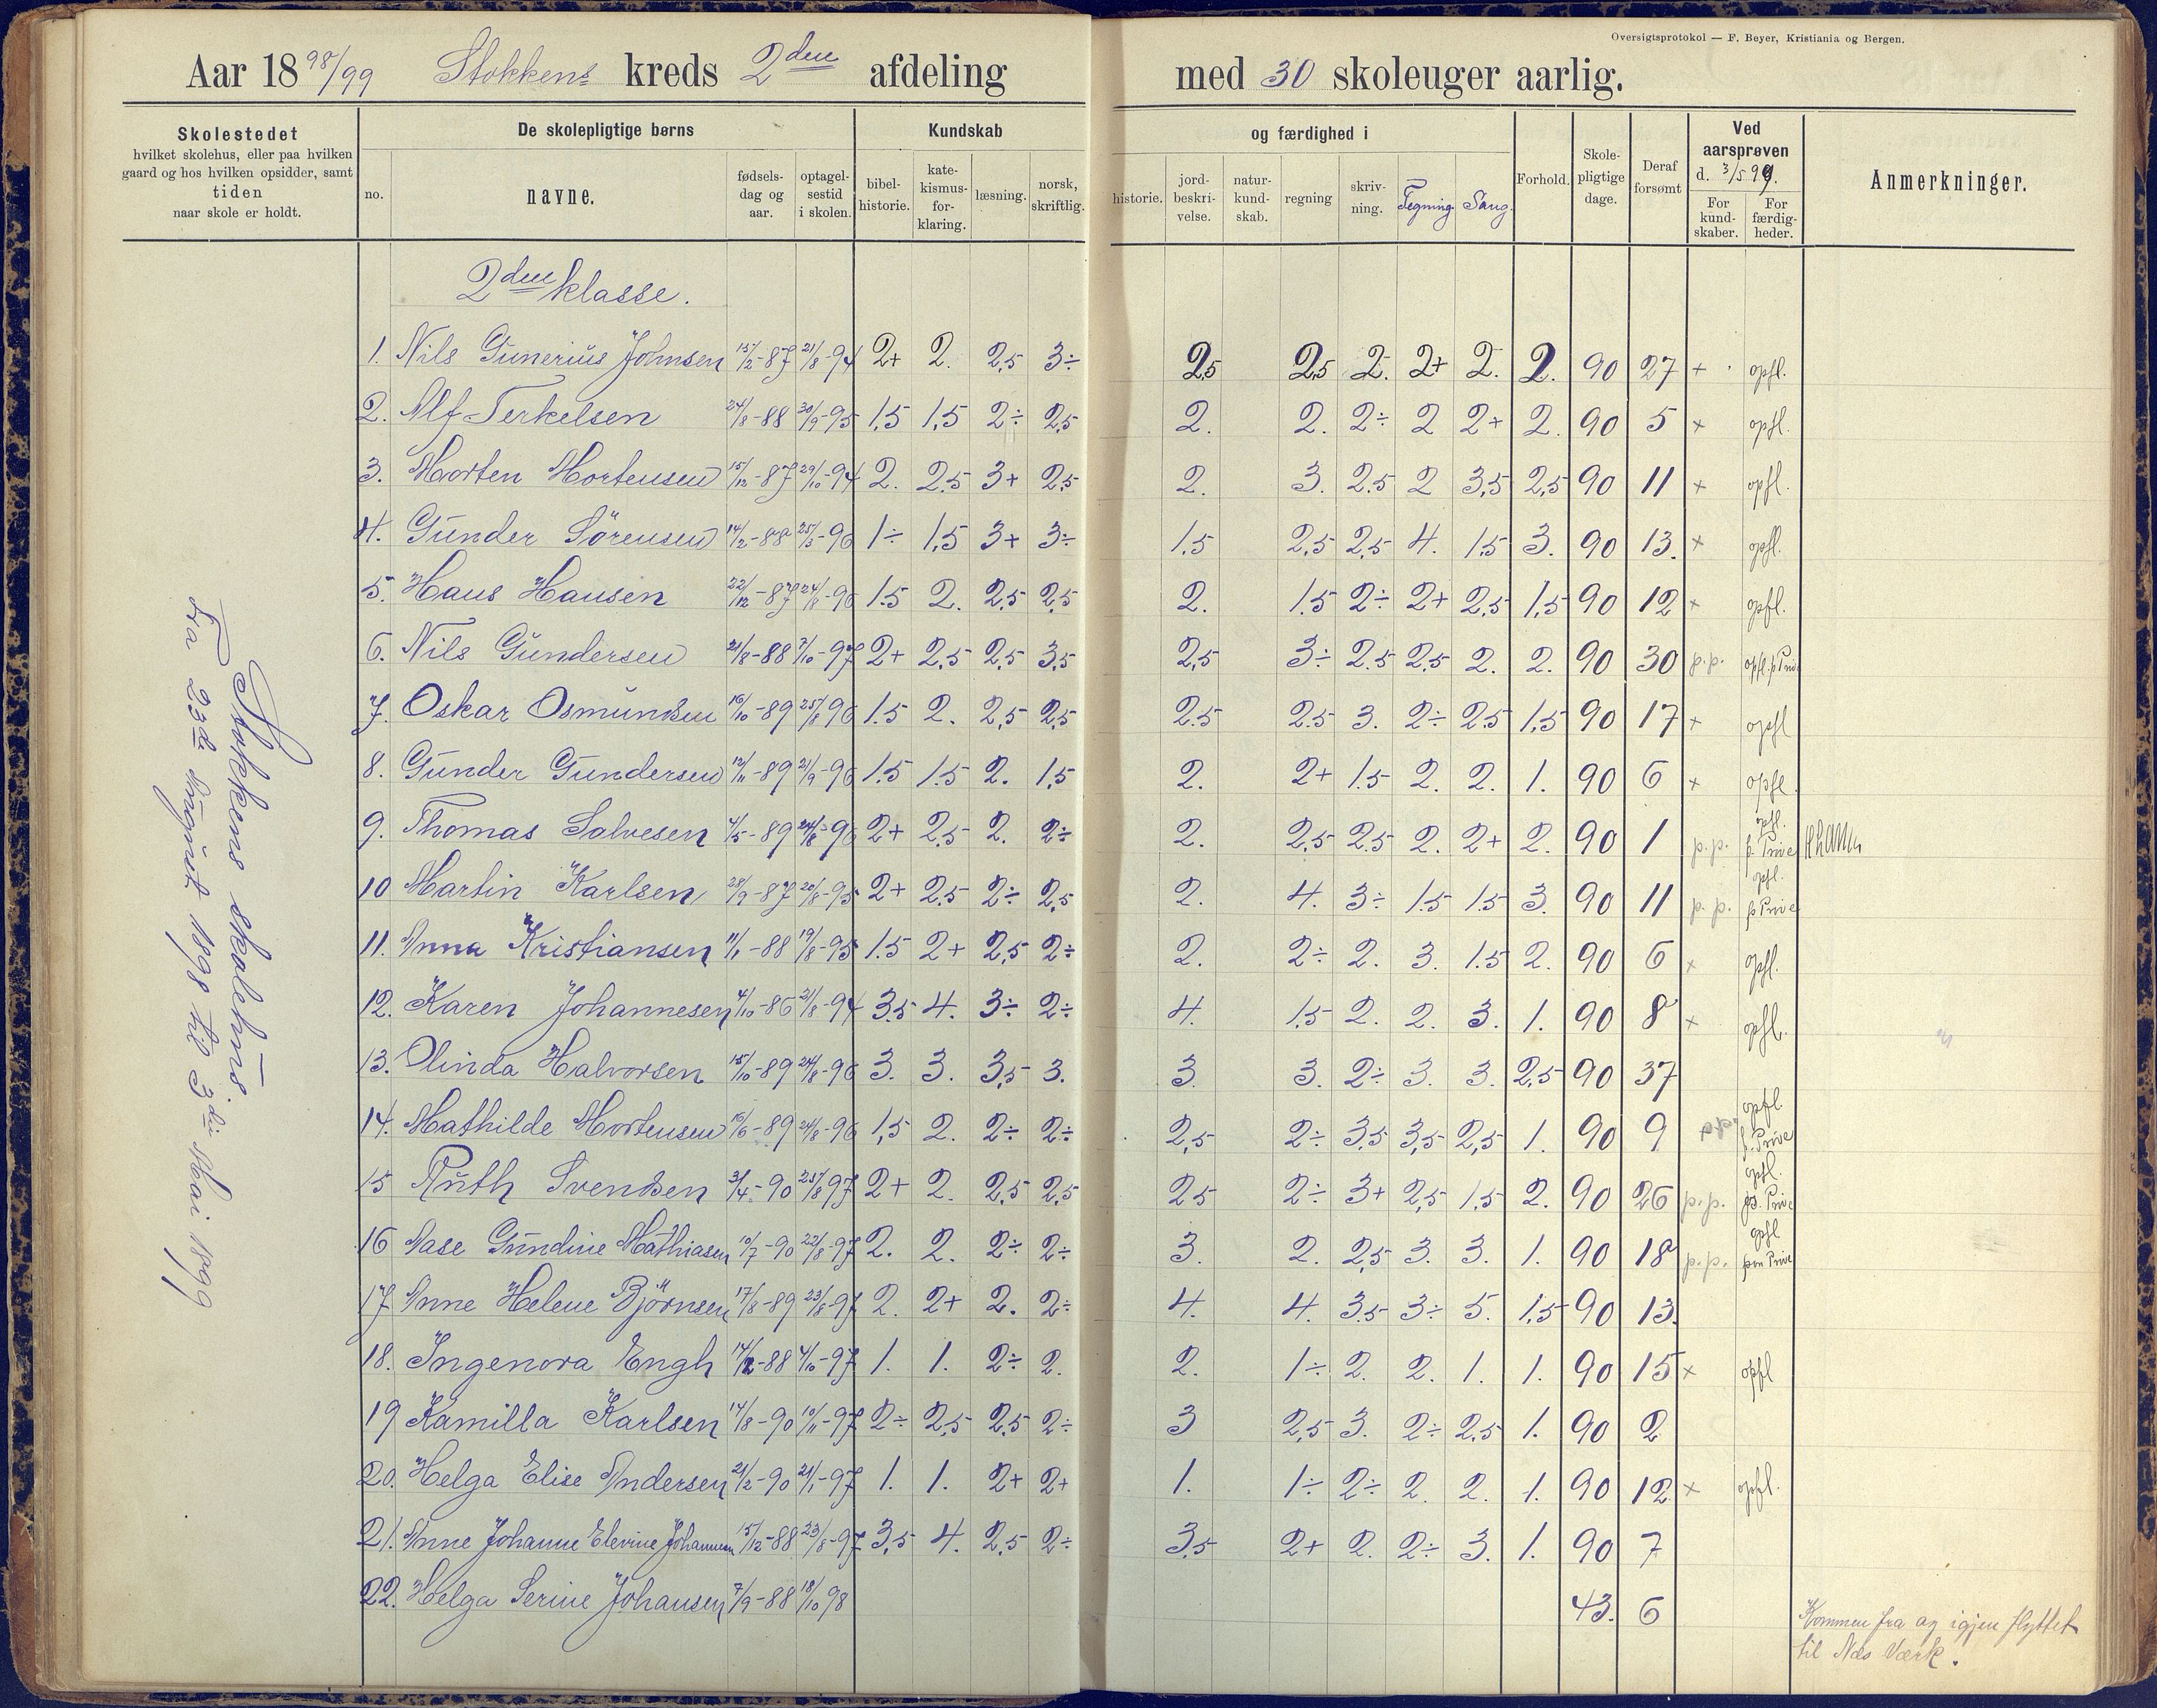 Oversigtsprotokol — F. Beyer, Kristiania og Bergen.
Aar 1898/99 Stokkens kreds 2den afdeling med 30 skoleuger aarlig.
Skolestedet
hvilket skolehus, eller paa hvilken
gaard og hos hvilken opsidder, samt
tiden
naar skole er holdt.
De skolepligtige børns
no. navne. fødsels-dag og aar. optagel-sestid i skolen.
Kundskab og færdighed i
bibel-historie. kate-kismus-for-klaring. læsning. norsk, skriftlig. historie. jord-beskri-velse. natur-kund-skab. regning skriv-ning. Tegning Sang.
Forhold. Skole-pligtige dage. Deraf forsømt
Ved aarsprøven
d. 3/5 99.
For kund-skaber. For færdig-heder.
Anmerkninger.
Stokkens skolehus
Fra 23d august 1898 til 3die Mai 1899
2den klasse.
1. Nils Gunerius Johnsen 15/2-87 21/8-94 2+ 2. 2,5 3÷ 2,5 2,5 2. 2+ 2. 2. 90 27 + opfl.
2. Alf Terkelsen 24/8-88 30/9-95 1,5 1,5 2÷ 2,5 2. 2. 2÷ 2 2+ 2. 90 5 × opfl.
3. Morten Mortensen 15/12-87 29/10-94 2. 2.5 3+ 2,5 2. 3. 2.5 2 3,5 2,5 90 11 × opfl.
4. Gunder Sörensen 14/2-88 25/3-96 1÷ 1,5 3+ 3÷ 1.5 2,5 2,5 4. 1,5 3. 90 13. × opfl.
5. Hans Hansen 22/12-87 24/8-96 1.5 2. 2,5 2,5 2. 1.5 2÷ 2+ 2,5 1,5 90 12 × opfl.
6. Nils Gundersen 21/8-88 7/10-97 2+ 2,5 2,5 3,5 2,5 3÷ 2.5 2,5 2. 2. 90 30 p.p. opfl. p Prive
7. Oskar Osmundsen 16/10-89 25/8 96 1.5 2. 2,5 2,5 2.5 2.5 3. 2÷ 2.5 1,5 90 17 × opfl
8. Gunder Gundersen 12/11-89 21/9-96 1.5 1.5 2. 1,5 2. 2+ 1.5 2. 2. 1. 90 6 × opfl.
9. Thomas Salvesen 4/5-89 24/8-96 2+ 2.5 2. 2÷ 2. 2,5 2.5 2. 2+ 2. 90 1 p.p. opfl. p. Prive
10 Martin Karlsen 28/9-87 20/8-95 2+ 2.5 2÷ 2,5 2. 4. 3÷ 1.5 1.5 3. 90 11 p.p. opfl. p Prive
11. Anna Kristiansen 11/1-88 19/8-95 1.5 2+ 2,5 2÷ 2. 2÷ 2. 3. 1.5 2. 90 6 × opfl.
12. Karen Johannesen 4/10-86 21/8-94 3.5 4. 3÷ 2÷ 4. 1.5 2. 2. 3. 1. 90 8 × opfl.
13. Olinda Halvorsen 15/10-89 24/8-96 3. 3. 3,5 3. 3. 3. 2÷ 3. 3. 2,5 90 37
14. Mathilde Mortensen 16/6-89 24/8-96 1,5 2. 2÷ 2÷ 2,5 2÷ 3,5 3,5 2,5 1. 90 9 opfl p. Prive
15 Ruth Svendsen 3/4-90 25/8 97 2+ 2. 2,5 2,5 2.5 2÷ 3+ 2,5 1.5 2. 90 26 p.p. opfl. p. Prive
16 Aase Gundine Mathiasen 10/7-90 22/8-97 2. 2. 2÷ 2÷ 3. 2. 2,5 3. 3. 1. 90 18 p.p. opfl Prive
17. Anne Helene Björnsen 17/8-89 23/8-97 2. 2+ 2. 2÷ 4. 4. 3.5 3÷ 5. 1,5 90 13.
18. Ingenora Engh 14/2-88 4/10-97 1. 1. 2÷ 2. 2. 1÷ 2. 2. 1. 1. 90 15 × opfl
19 Kamilla Karlsen 14/8-90 10/11-97 2÷ 2,5 2,5 2÷ 3 2,5 3. 2÷ 2.5 1. 90 2
20. Helga Elise Andersen 21/2-90 21/1-97 1. 1. 2+ 2+ 1. 1÷ 2÷ 2. 2. 1. 90 12 × opfl.
21. Anne Johanne Elevine Johannesen 15/12-88 23/8-97 3,5 4. 2,5 2÷ 3.5 2+ 2. 2÷ 3. 1. 90 7
22. Helga Serine Johansen 7/9-88 18/10 98 43. 6 Kommen fra og igjen flyttet
til Næs Værk.